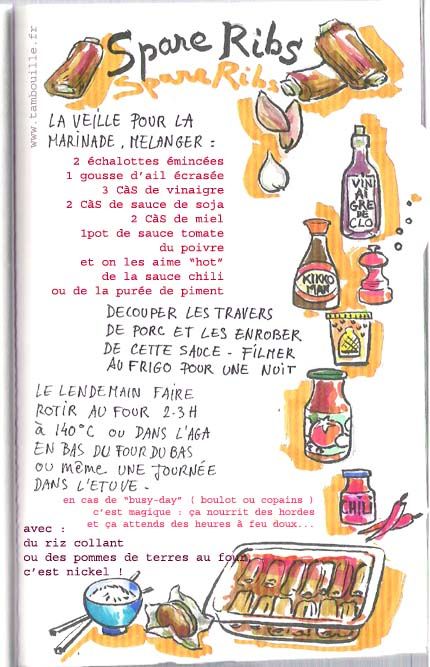 Spare Ribs
Spare Ribs
www.tambouille.fr
LA VEILLE POUR LA
MARINADE, MELANGER :
2 échalottes émincées
1 gousse d'ail écrasée
3 CàS de vinaigre
2 CàS de sauce de soja
2 CàS de miel
1pot de sauce tomate
du poivre
et on les aime "hot"
de la sauce chili
ou de la purée de piment
VIN
AI
GRE
DE
CLO
KIKKO
MAN
DECOUPER LES TRAVERS
DE PORC ET LES ENROBER
DE CETTE SAUCE - FILMER
AU FRIGO POUR UNE NUIT
LE LENDEMAIN FAIRE
ROTIR AU FOUR 2-3H
à 140°C OU DANS L'AGA
EN BAS DU FOUR DU BAS
OU même UNE JOURNÉE
DANS L'ETUVE -
CHILI
en cas de "busy-day" ( boulot ou copains )
c'est magique : ça nourrit des hordes
et ça attends des heures à feu doux...
avec :
du riz collant
ou des pommes de terres au four,
c'est nickel !